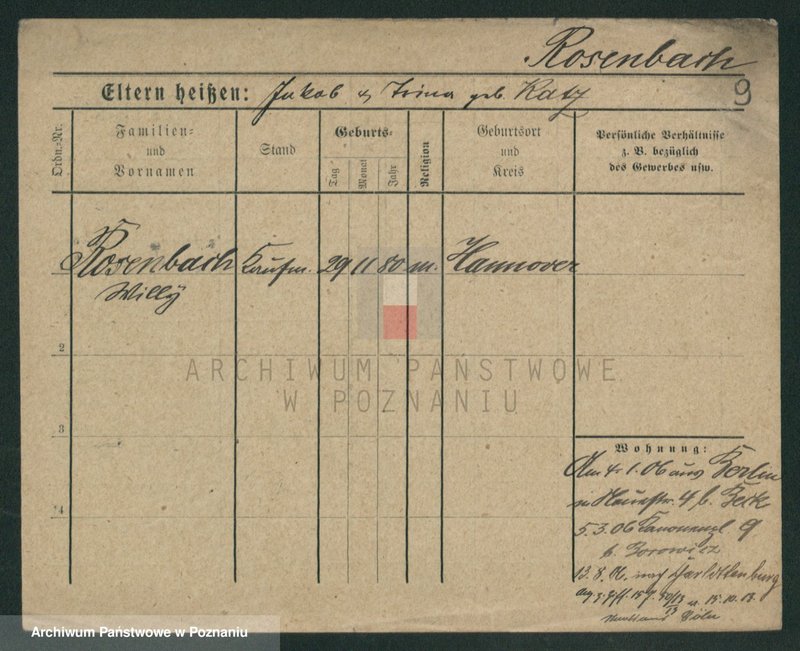 Rosenbach
9
Eltern heißen: Jakob & Irina geb. Katz
Ordn.-Nr.
Familien- und Vornamen
Stand
Geburts-
Tag
Monat
Jahr
Religion
Geburtsort und Kreis
Persönliche Verhältnisse
z. B. bezüglich
des Gewerbes usw.
Rosenbach Kaufm. 29 11 80 m. Hannover
Willÿ
2
ARCHIWUM PAŃSTWOWE
W POZNANIU
3
Wohnung:
Am 4. 1. 06 aus Berlin
4 b. Beck
4
5.3.06 Kanonenpl. 9
b. Borowicz
13.8.06. nach Charlottenburg
15.10.13.
Archiwum Państwowe w Poznaniu